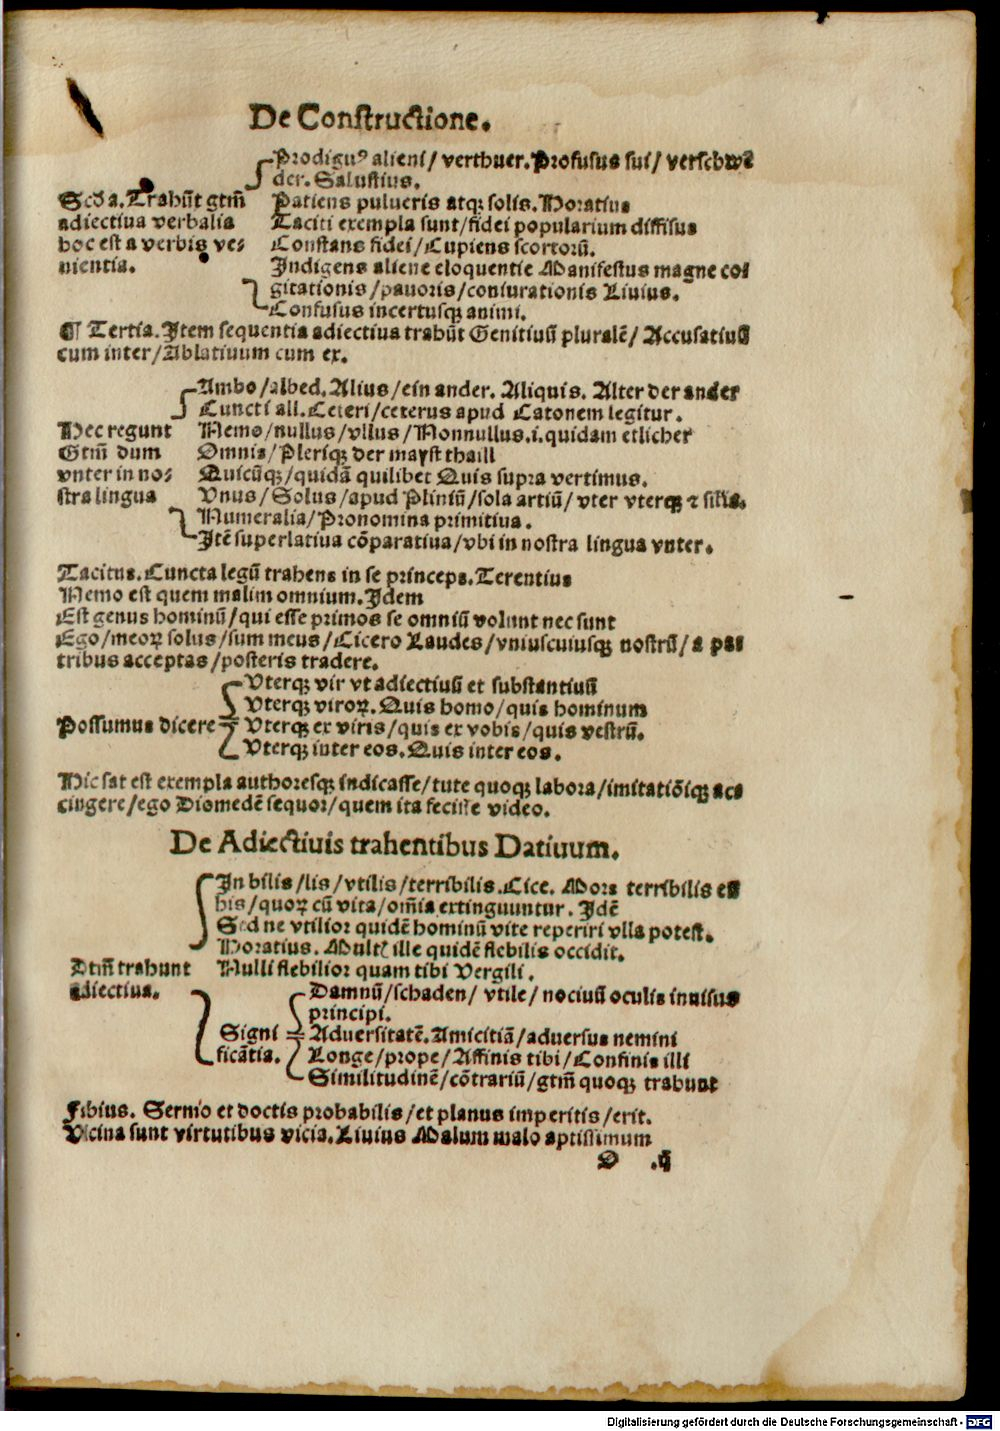 De Constructione.
Prodigus alieni/ verthuer. Profusus sui/ verschwē
der. Salustius.
Scd̄a. Trahūt gtm̄
adiectiua verbalia
hoc est a verbis ve⸗
nientia.
Patiens pulueris atqꝫ solis. Horatius
Taciti exempla sunt/fidei popularium diffisus
Constans fidei/ Cupiens scortorū.
Indigens aliene eloquentie Manifestus magne co⸗
gitationis/pauoris/coniurationis Liuius.
Confusus incertusqꝫ animi.
¶ Tertia. Item sequentia adiectiua trahūt Genitiuū pluralē/ Accusatiuū
cum inter/Ablatiuum cum ex.
Ambo/albed. Alius/ein ander. Aliquis. Alter der ander
Cuncti all. Ceteri/ceterus apud Catonem legitur.
Hec regunt
Gtm̄ dum
vnter in no⸗
stra lingua
Nemo/nullus/vllus/Nonnullus.i.quidam etlicher
Omnis/Pleriqꝫ der mayst thaill
Quicūqꝫ/quidā quilibet Quis supra vertimus.
Vnus/Solus/apud Pliniū/sola artiū/vter vterqꝫ ⁊ silia.
Numeralia/Pronomina primitiua.
Itē superlatiua cōparatiua/vbi in nostra lingua vnter.
Tacitus. Cuncta legū trahens in se princeps. Terentius
Nemo est quem malim omnium. Idem
Est genus hominū/qui esse primos se omniū volunt nec sunt
Ego/meoꝝ solus/sum meus/Cicero Laudes/vniuscuiusqꝫ nostrū/a pa⸗
tribus acceptas/posteris tradere.
Possumus dicere
Vterqꝫ vir vt adiectiuū et substantiuū
Vterqꝫ viroꝝ. Quis homo/quis hominum
Vterqꝫ ex viris/quis ex vobis/quis vestrū.
Vterqꝫ inter eos. Quis inter eos.
Hic sat est exempla authoresqꝫ indicasse/tute quoqꝫ labora/imitatiōiqꝫ ac⸗
cingere/ego Diomedē sequor/quem ita fecisse video.
De Adiectiuis trahentibus Datiuum.
In bilis/lis/vtilis/terribilis. Cice. Mors terribilis est
his/quoꝝ cū vita/om̄ia extinguuntur. Idē
Sed ne vtilior quidē hominū vite reperiri vlla potest.
Horatius. Mult⸝ ille quidē flebilis occidit.
Dtm̄ trahunt
adiectiua.
Nulli flebilior quam tibi Vergili.
Signi
ficātia.
Damnū/schaden/ vtile/ nociuū oculis inuisus
principi.
Aduersitatē. Amicitiā/aduersus nemini
Longe/prope/Affinis tibi/Confinis illi
Similitudinē/cōtrariū/gtm̄ quoqꝫ trahunt
Fibius. Sermo et doctis probabilis/et planus imperitis/erit.
Vicina sunt virtutibus vicia. Liuius Malum malo aptissimum
D .ij
Digitalisierung gefördert durch die Deutsche Forschungsgemeinschaft - DFG